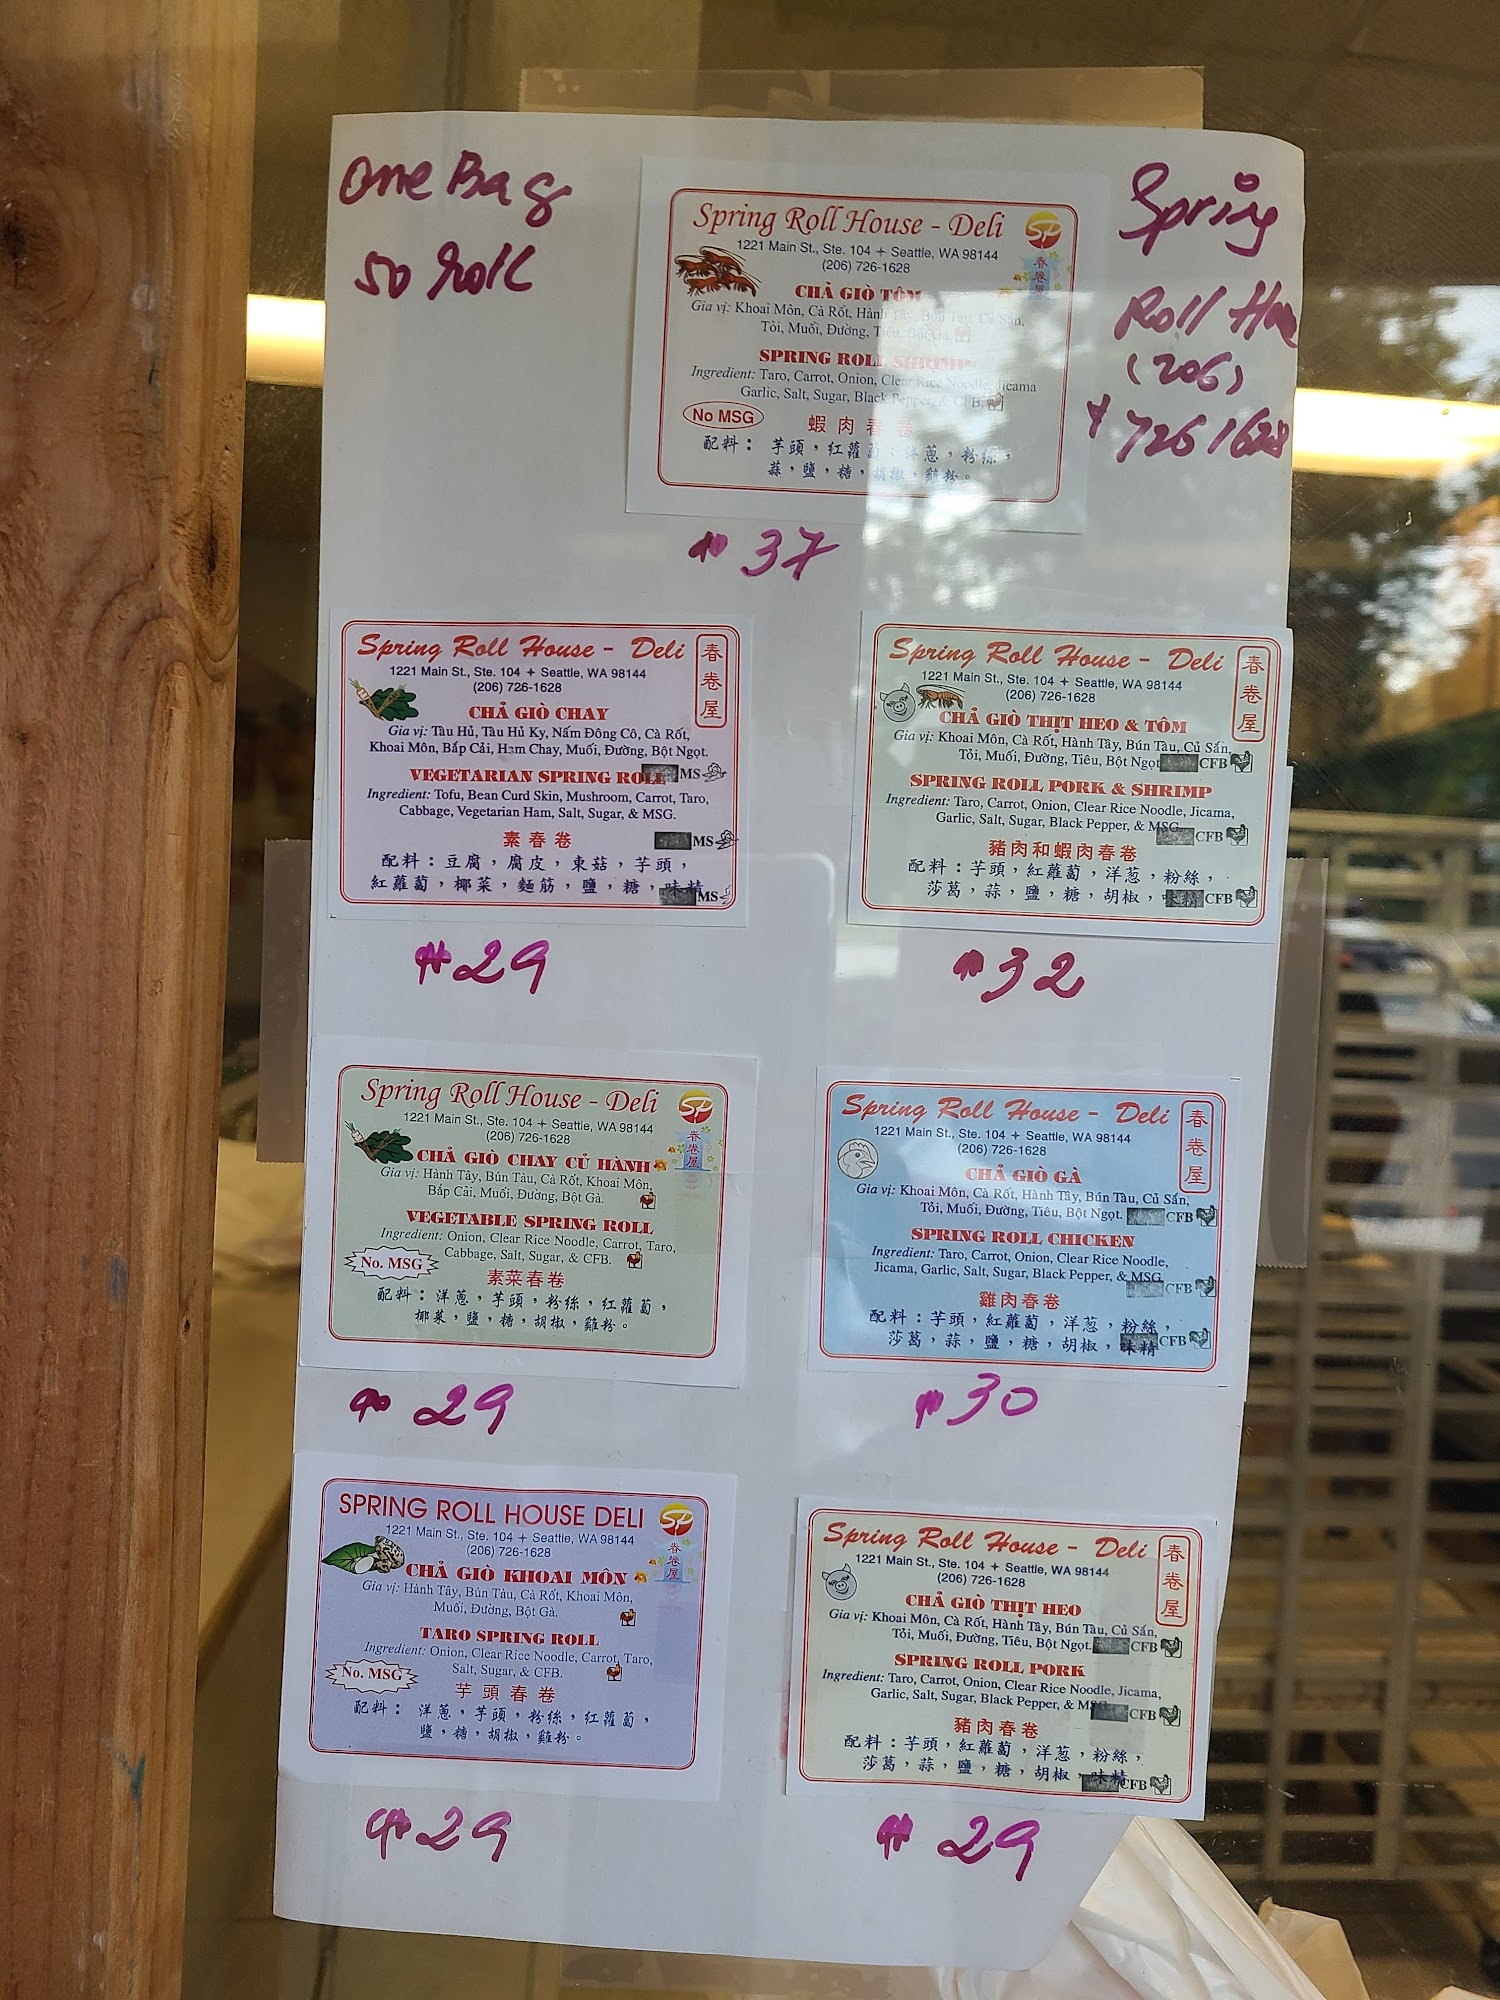 One Bag
50 Roll
Spring
Roll
(206)
7261628
Spring Roll House - Deli
SP
春卷屋
1221 Main St., Ste. 104 + Seattle, WA 98144
(206) 726-1628
CHẢ GIÒ TÔM
Gia vị: Khoai Môn, Cà Rốt, Hành Tây, Bún Tàu, Củ Sắn,
Tỏi, Muối, Đường, Tiêu, Bột Gà.
SPRING ROLL SHRIMP
Ingredient: Taro, Carrot, Onion, Clear Rice Noodle, Jicama
Garlic, Salt, Sugar, Black Pepper, & CFB.
No MSG
蝦肉春卷
配料：芋頭，紅蘿蔔，洋蔥，粉絲，
蒜，鹽，糖，胡椒，雞粉。
$37
Spring Roll House - Deli
春卷屋
1221 Main St., Ste. 104 + Seattle, WA 98144
(206) 726-1628
CHẢ GIÒ CHAY
Gia vị: Tàu Hủ, Tàu Hủ Ky, Nấm Đông Cô, Cà Rốt,
Khoai Môn, Bắp Cải, Ham Chay, Muối, Đường, Bột Ngọt.
MS
VEGETARIAN SPRING ROLL
Ingredient: Tofu, Bean Curd Skin, Mushroom, Carrot, Taro,
Cabbage, Vegetarian Ham, Salt, Sugar, & MSG.
MS
素春卷
配料：豆腐，腐皮，東菇，芋頭，
紅蘿蔔，椰菜，麵筋，鹽，糖，味精
MS
$29
Spring Roll House - Deli
春卷屋
1221 Main St., Ste. 104 + Seattle, WA 98144
(206) 726-1628
CHẢ GIÒ THỊT HEO & TÔM
Gia vị: Khoai Môn, Cà Rốt, Hành Tây, Bún Tàu, Củ Sắn,
Tỏi, Muối, Đường, Tiêu, Bột Ngọt CFB
SPRING ROLL PORK & SHRIMP
Ingredient: Taro, Carrot, Onion, Clear Rice Noodle, Jicama,
Garlic, Salt, Sugar, Black Pepper, & MSG CFB
豬肉和蝦肉春卷
配料：芋頭，紅蘿蔔，洋葱，粉絲，
莎葛，蒜，鹽，糖，胡椒，味精 CFB
$32
Spring Roll House - Deli
SP
春卷屋
1221 Main St., Ste. 104 + Seattle, WA 98144
(206) 726-1628
CHẢ GIÒ CHAY CỦ HÀNH
Gia vị: Hành Tây, Bún Tàu, Cà Rốt, Khoai Môn,
Bắp Cải, Muối, Đường, Bột Gà.
VEGETABLE SPRING ROLL
Ingredient: Onion, Clear Rice Noodle, Carrot, Taro,
Cabbage, Salt, Sugar, & CFB.
No. MSG
素菜春卷
配料：洋蔥，芋頭，粉絲，紅蘿蔔，
椰菜，鹽，糖，胡椒，雞粉。
$29
Spring Roll House - Deli
春卷屋
1221 Main St., Ste. 104 + Seattle, WA 98144
(206) 726-1628
CHẢ GIÒ GÀ
Gia vị: Khoai Môn, Cà Rốt, Hành Tây, Bún Tàu, Củ Sắn,
Tỏi, Muối, Đường, Tiêu, Bột Ngọt. CFB
SPRING ROLL CHICKEN
Ingredient: Taro, Carrot, Onion, Clear Rice Noodle,
Jicama, Garlic, Salt, Sugar, Black Pepper, & MSG
CFB
雞肉春卷
配料：芋頭，紅蘿蔔，洋葱，粉絲，
莎葛，蒜，鹽，糖，胡椒，味精 CFB
$30
SPRING ROLL HOUSE DELI
SP
春卷屋
1221 Main St., Ste. 104 + Seattle, WA 98144
(206) 726-1628
CHẢ GIÒ KHOAI MÔN
Gia vị: Hành Tây, Bún Tàu, Cà Rốt, Khoai Môn,
Muối, Đường, Bột Gà.
TARO SPRING ROLL
Ingredient: Onion, Clear Rice Noodle, Carrot, Taro,
Salt, Sugar, & CFB.
No. MSG
芋頭春卷
配料：洋蔥，芋頭，粉絲，紅蘿蔔，
鹽，糖，胡椒，雞粉。
$29
Spring Roll House - Deli
春卷屋
1221 Main St., Ste. 104 + Seattle, WA 98144
(206) 726-1628
CHẢ GIÒ THỊT HEO
Gia vị: Khoai Môn, Cà Rốt, Hành Tây, Bún Tàu, Củ Sắn,
Tỏi, Muối, Đường, Tiêu, Bột Ngọt. CFB
SPRING ROLL PORK
Ingredient: Taro, Carrot, Onion, Clear Rice Noodle, Jicama,
Garlic, Salt, Sugar, Black Pepper, & MSG
CFB
豬肉春卷
配料：芋頭，紅蘿蔔，洋葱，粉絲，
莎葛，蒜，鹽，糖，胡椒，味精 CFB
$29